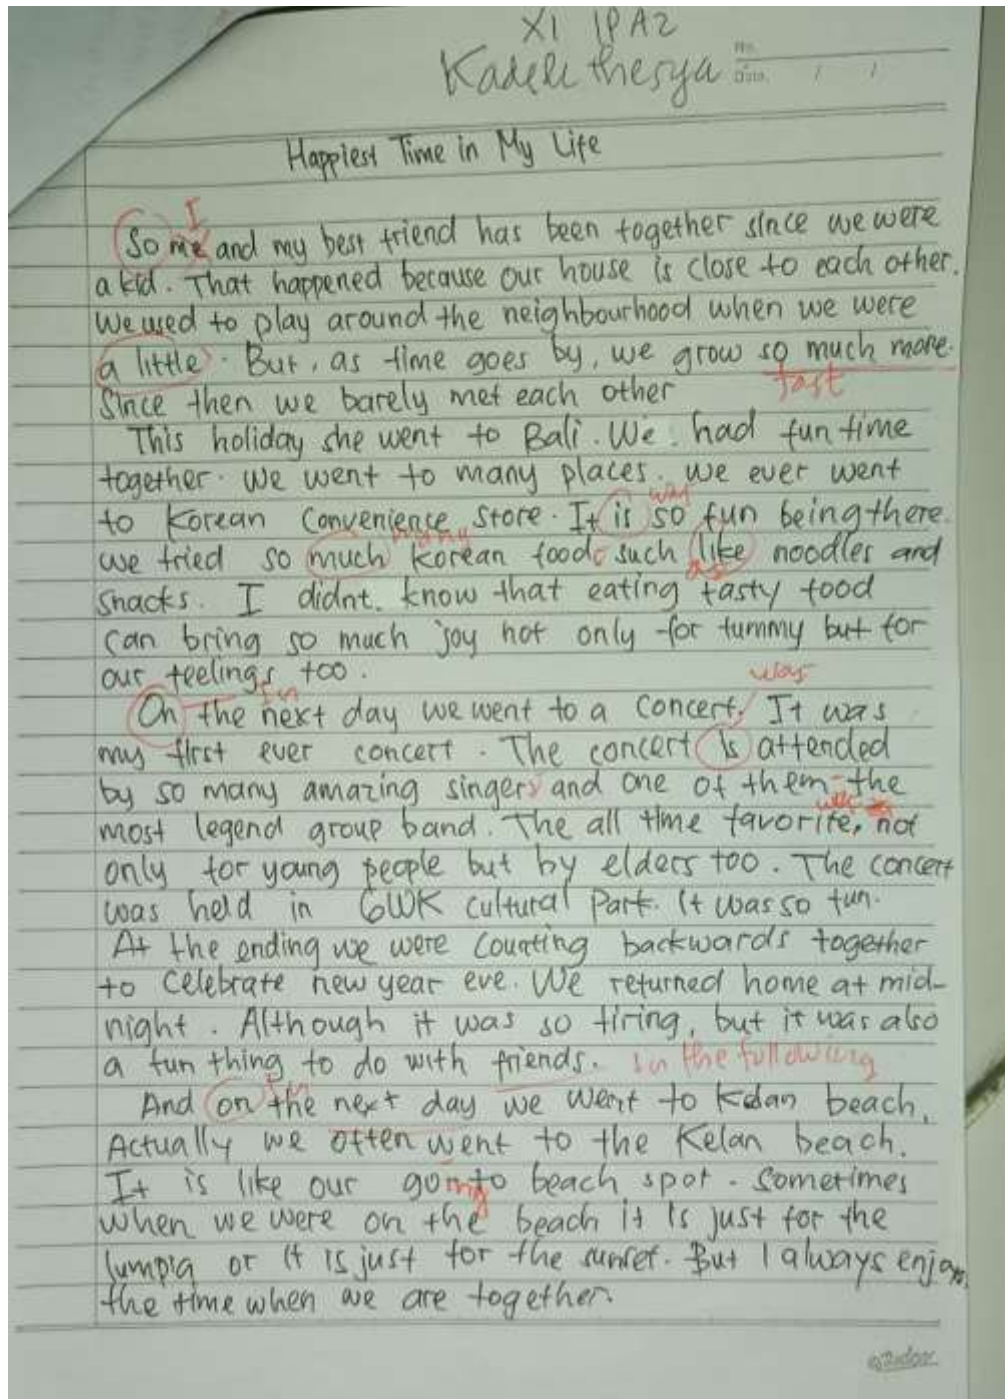 XI IPA2
Kadek thesya
No.
Date. / /
Happiest Time in My Life
I
So me and my best friend has been together since we were
a kid. That happened because our house is close to each other.
We used to play around the neighbourhood when we were
a little. But, as time goes by, we grow so much more.
fast
Since then we barely met each other
This holiday she went to Bali. We had fun time
together. We went to many places. We ever went
was
to Korean Convenience Store. It is so fun being there.
many
we tried so much korean food such like noodles and
as
snacks. I didnt know that eating tasty food
can bring so much joy not only for tummy but for
our feelings too.
In was
On the next day we went to a concert. It was
my first ever concert. The concert is attended
by so many amazing singers and one of them the
most legend group band. The all time favorite, not
only for young people but by elders too. The concert
was held in GWK cultural Park. It was so fun.
At the ending we were counting backwards together
to celebrate new year eve. We returned home at mid-
night. Although it was so tiring, but it was also
a fun thing to do with friends. In the following
In
And on the next day we went to Kelan beach.
Actually we often went to the Kelan beach.
It is like our go to beach spot. Sometimes
ing
when we were on the beach it is just for the
lumpia or it is just for the sunset. But I always enjoy
the time when we are together.